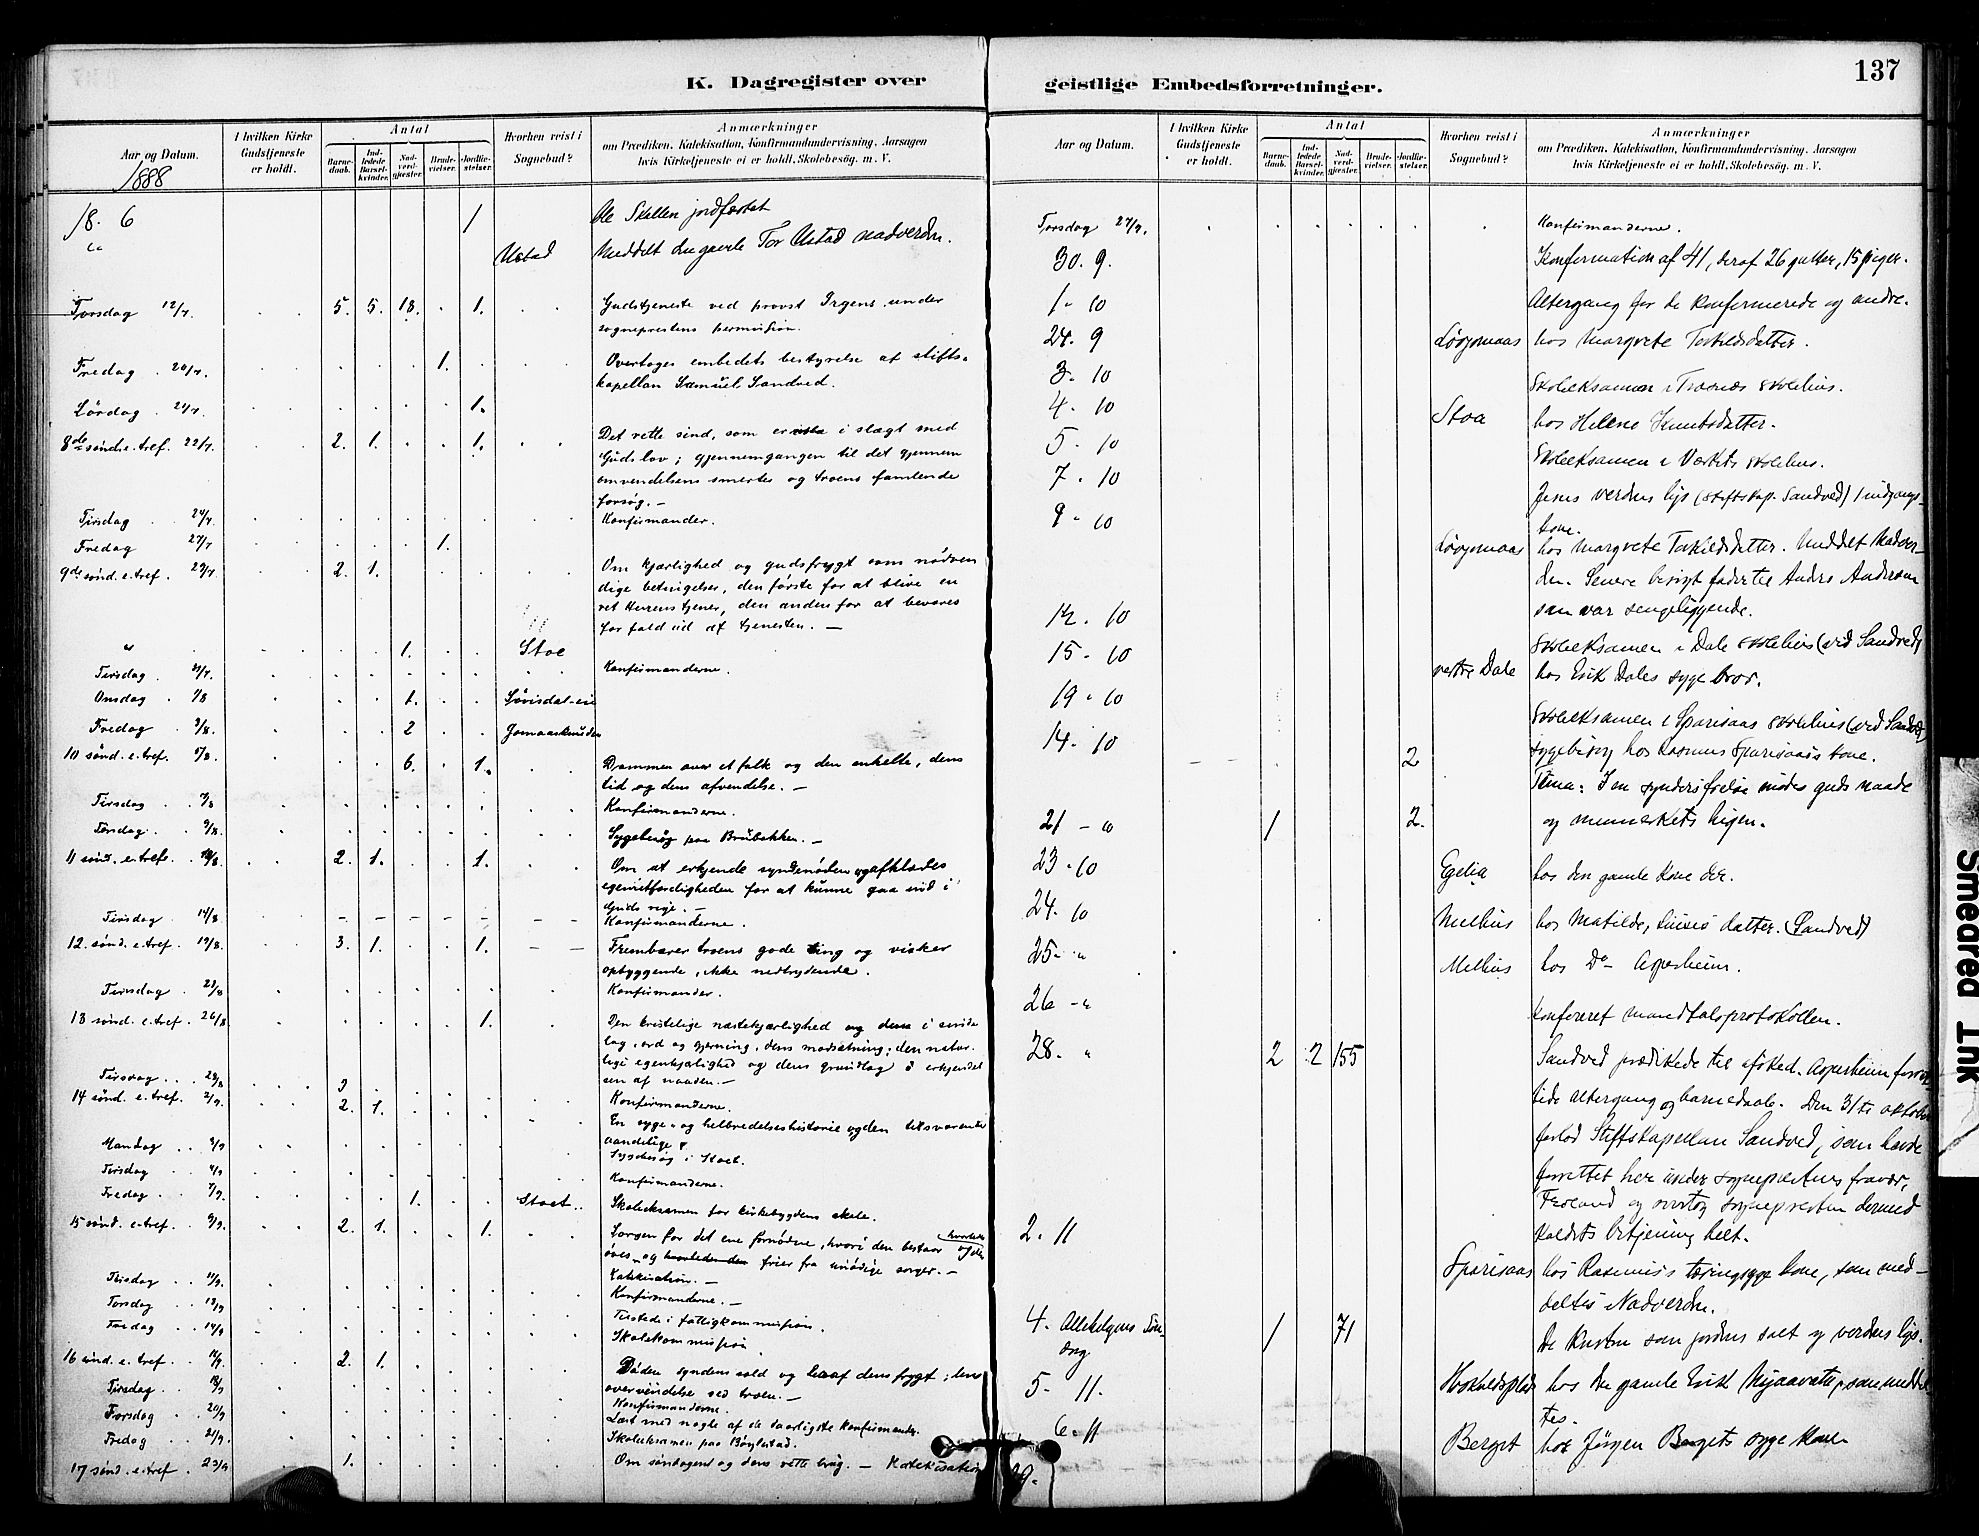 K. Dagregister over geistlige Embedsforretninger.
137
Aar og Datum.
I hvilken Kirke Gudstjeneste er holdt.
Antal
Barnedaab.
Indledede Barselkvinder.
Nadverdgjester.
Brudevielser.
Jordfæstelser.
Hvorhen reist i Sognebud?
Anmærkninger
om Prædiken, Katekisation, Konfirmandundervisning, Aarsagen
hvis Kirketjeneste ei er holdt, Skolebesøg. m. V.
1888
18. 6 1 Ole Skellen jordfæstet
" Ustad Meddelt den gamle Tor Ustad nadverden.
Torsdag 12/7. 5. 5. 18. 1. Gudstjeneste ved provst Irgens under
sogneprestens permission.
Fredag 20/7. 1. Overtages embedets bestyrelse af stifts-
kapellan Samuel Sandved.
Lördag 21/7. 1.
8de sönd. e. tref. 22/7. 2. 1. 1. Det rette sind, som er i slægt med
Guds lov; gjennemgangen til det gjennem
omvendelsens smertes og troens famlende
forsøg. —
Tirsdag 24/7. Konfirmander.
Fredag 27/7 1.
9de sönd. e. tref. 29/7. 2. 1. Om kjærlighed og gudsfrygt som nödven
dige betingelser, den förste for at blive en
ret Herrens tjener, den anden for at bevares
for fald ud af tjenesten. —
" 1. Stoe
Tirsdag 31/7. Konfirmanderne.
Onsdag 1/8 1.
Fredag 3/8. 2
10 sönd. e. tref. 5/8. 6. 1. Dommen over et folk og den enkelte, dens
tid og dens afvendelse. —
Tirsdag 7/8 Konfirmanderne.
Torsdag 9/8. Sygebesög paa Brubakken. —
11 sönd. e. tref. 12/8. 2. 1. 1. Om at erkjende syndenöden og afklædes
egenretfærdigheden for at kunne gaa ind i
Guds rige. —
Tirsdag 14/8. Konfirmanderne.
12. sönd. e. tref. 19/8. 3. 1. 1. Frembærer troens gode ting og virker
opbyggende, ikke nedbrydende.
Tirsdag 21/8 Konfirmander.
13 sönd. e. tref. 26/8 1. Den kristelige næstekjærlighed og dens i sinde
lag, ord og gjerning, dens modsætning; den natur-
lige egenkjærlighed og dens grundlag i erkjendel
sen af naaden. —
Tirsdag 28/8 Konfirmanderne.
14 sönd. e. tref. 2/9. 2. 1. En syge- og helbredelseshistorie og den tilsvarende
aandelige
Mandag 3/9 Sygebesög i Stoet.
Tirsdag 4/9 Konfirmanderne.
Fredag 7/9. 1. Stoet. Skoleeksamen for kirkebygdens skole.
15 sönd. e. tref. 9/9. 2. 1. 1. Sorgen for det ene fornødne, hvori den bestaar
öves og frier fra unödige sorger. —
Katekisation. —
Tirsdag 11/9. Konfirmanderne. —
Torsdag 13/9 Tilstede i fattigkommission.
Fredag 14/9 Skolekommission
16 sönd. e. tref. 16/9. 2. 1. Döden syndens sold og dens frygt; dens
overvindelse ved troen. —
Tirsdag 18/9 Konfirmanderne.
Torsdag 20/9 Læst med nogle af de daarligste konfirmander.
Fredag 21/9. Skoleeksamen paa Böylestad.
17 sönd. e. tref. 23/9 1. Om söndagen og dens rette brug. — Katekisation
Aar og Datum.
I hvilken Kirke Gudstjeneste er holdt.
Antal
Barnedaab.
Indledede Barselkvinder.
Nadverdgjester.
Brudevielser.
Jordfæstelser.
Hvorhen reist i Sognebud?
Anmærkninger
om Prædiken, Katekisation, Konfirmandundervisning, Aarsagen
hvis Kirketjeneste ei er holdt, Skolebesøg. m. V.
Torsdag 27/9. Konfirmanderne.
30. 9. Konfirmation af 41, deraf 26 gutter, 15 piger.
1. 10 Altergang for de konfirmerede og andre.
24. 9 hos Margrete Terkildsdatter.
3. 10 Skoleeksamen i skolehus.
4. 10 Stoa hos Helene Knutsdatter.
5. 10 Skoleeksamen i Værkets skolehus.
7. 10 Jesus verdens lys (stiftskap. Sandved) 1 indgangs-
kone.
9. 10 hos Margrete Terkildsdatter. Meddelt Nadver-
den. Senere besögt fader til Anders Andersen
som var sengeliggende.
12. 10 Skoleeksamen i Dale skolehus (ved Sandved)
15. 10 vestre Dale hos Erik Dales syge bror.
19. 10 Skoleeksamen i Sparisaas skolehus (ved Sandved)
14. 10 2 sygebesög hos Rasmus Sparisaas's kone.
Tema: I en synders frelse mödes guds naade
21 - 10 1 2. og menneskets higen.
23. 10 Egelia hos den gamle kone der.
24. 10 Melhus hos Matilde, datter. (Sandved)
25. " Melhus hos Do - Asperheim.
26 - " Konfereret mandtalsprotokollen.
28. " 2 2 155 Sandved prædikede til afsked. Asperheim forret
tede altergang og barnedaab. Den 31te oktober
forlod Stiftskapellan Sandved, som havde
forrettet her under sogneprestens fravær,
Froland og overtog sognepresten dermed
2. 11 kaldets betjening helt.
Sparisaas hos Rasmus's tæringsyge kone, som med-
deltes Nadverden.
4. Allehelgens Sön- 1 71 De kristne som jordens salt og verdens lys.
dag
5. 11. hos den gamle Erik som meddel
tes.
6. 11 Berget hos Jörgen Bergets syge kone
9.
Smeared Ink